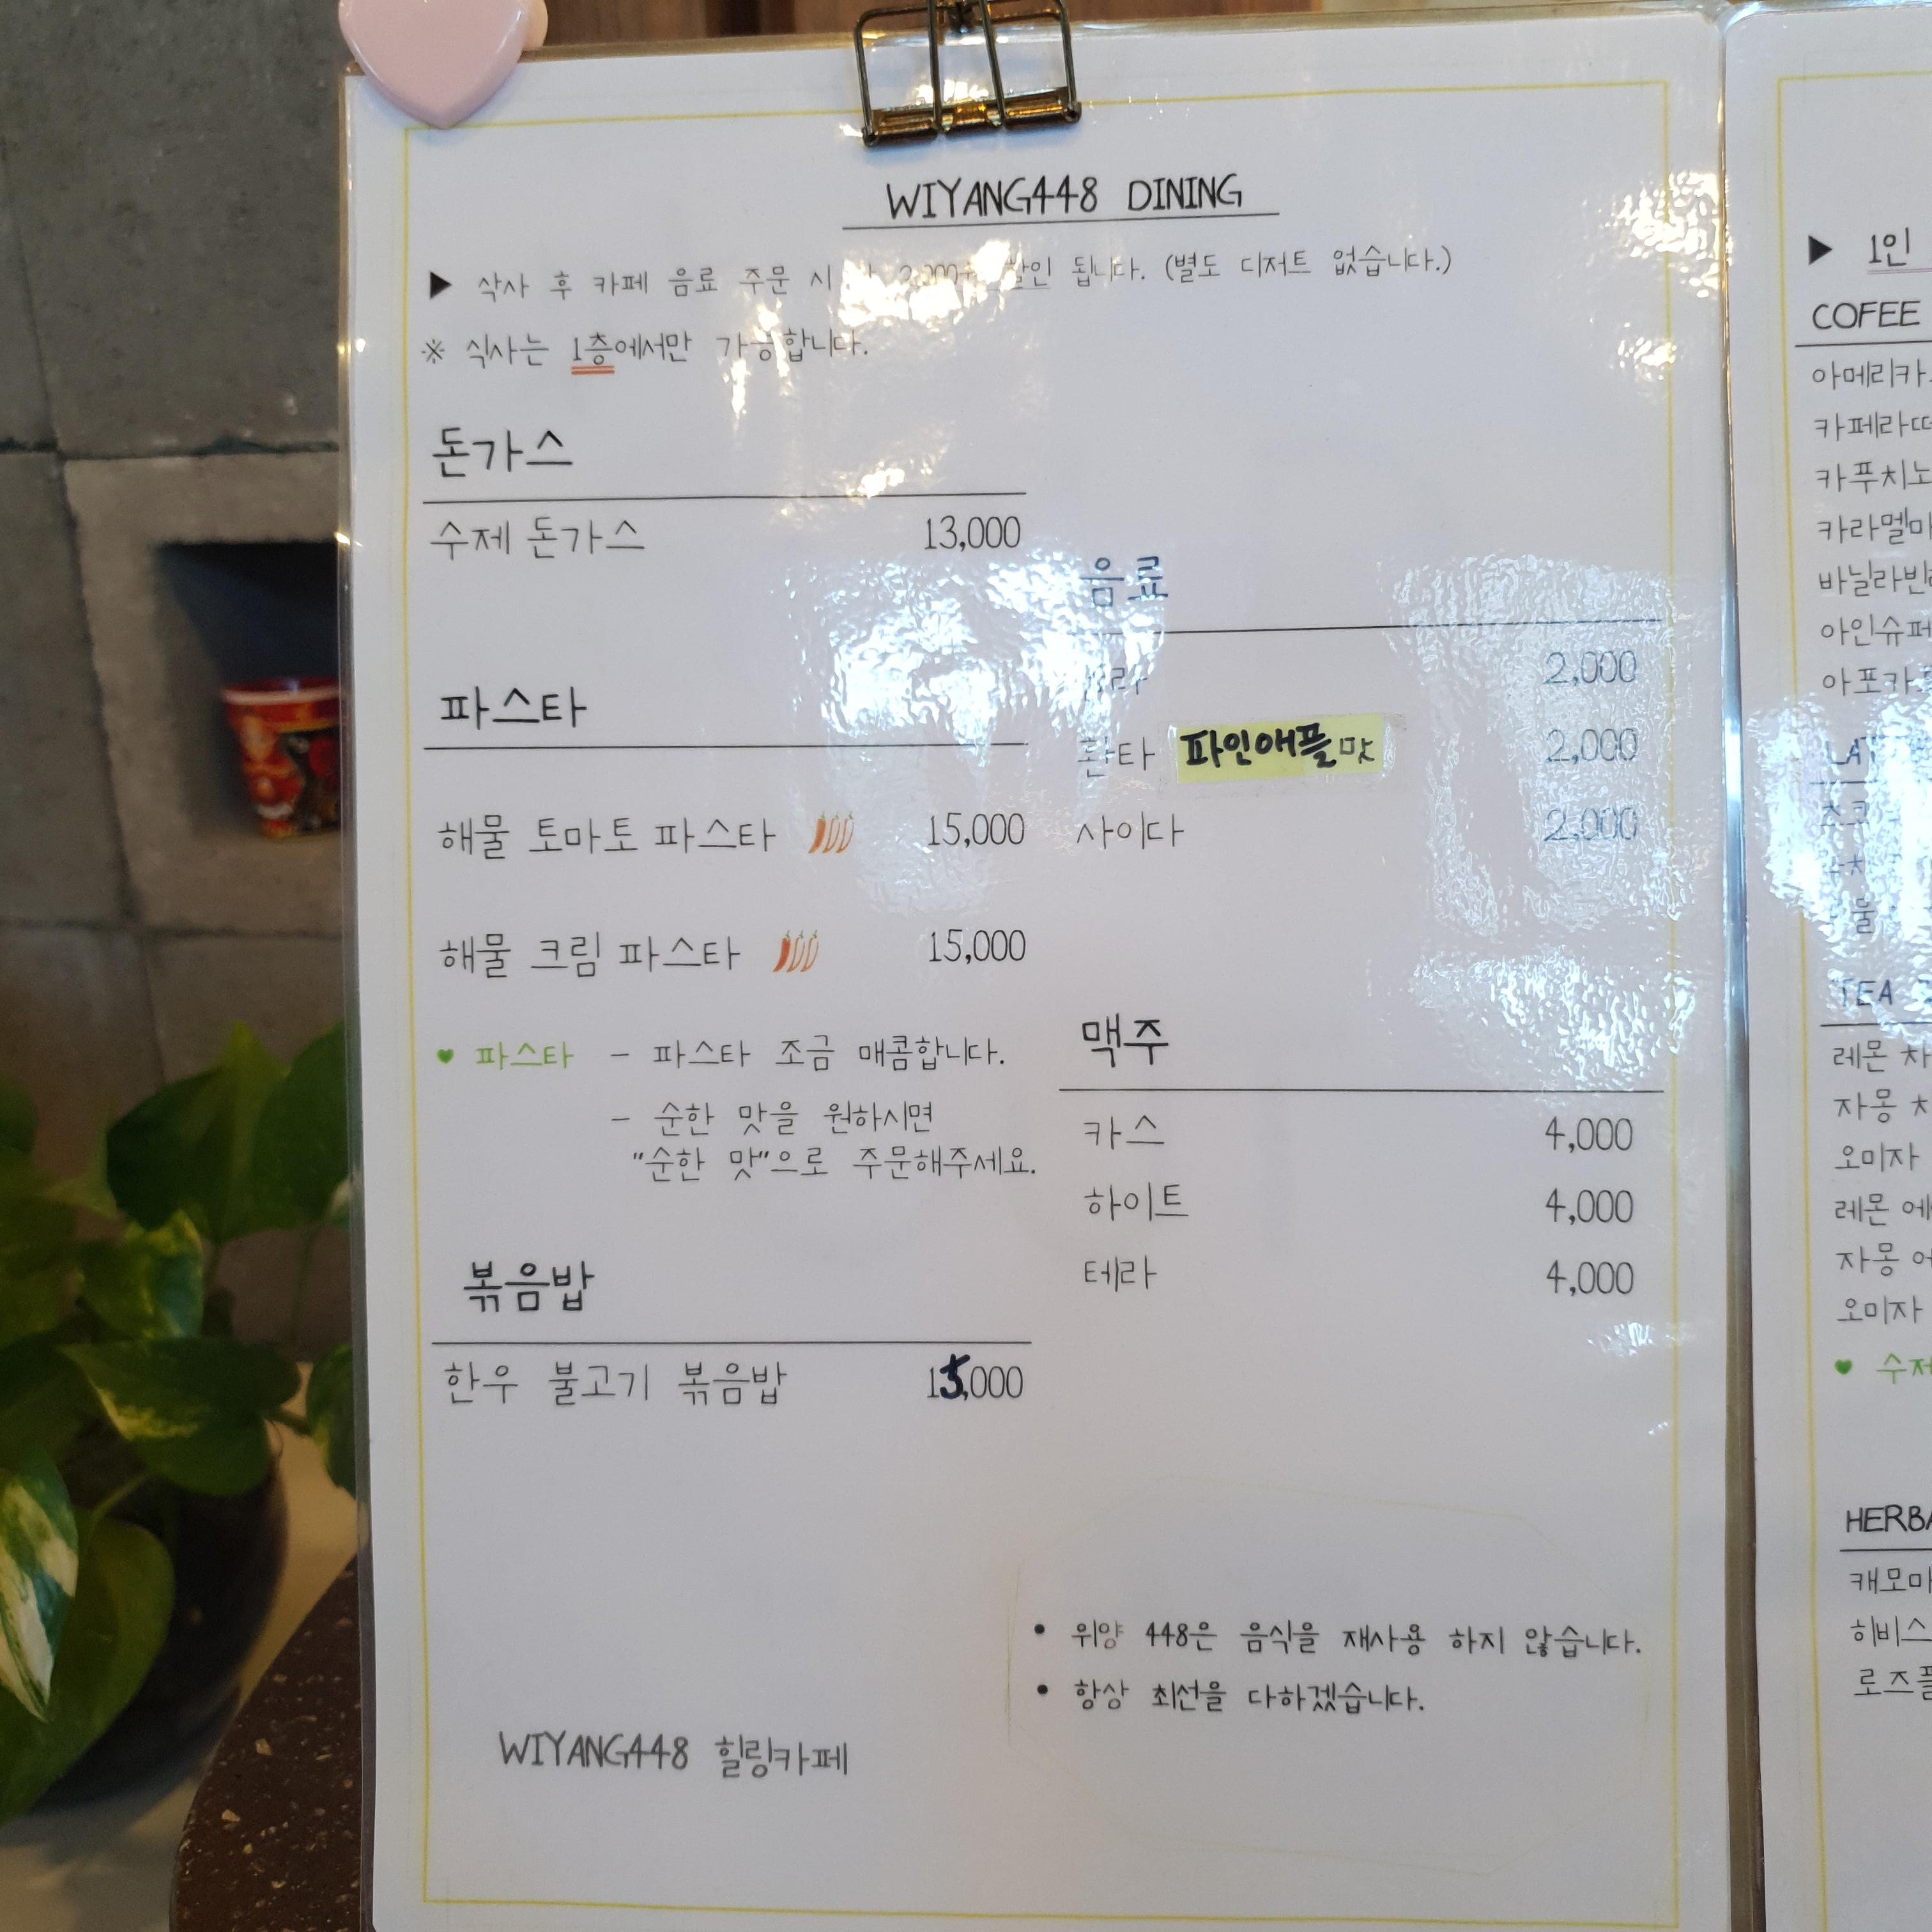 WIYANG448 DINING
▶ 삭사 후 카페 음료 주문 시 2,000 할인 됩니다. (별도 디저트 없습니다.)
※ 식사는 1층에서만 가능합니다.
돈가스
수제 돈가스 13,000
파스타
해물 토마토 파스타 15,000
해물 크림 파스타 15,000
♥ 파스타 - 파스타 조금 매콤합니다.
- 순한 맛을 원하시면
"순한 맛"으로 주문해주세요.
볶음밥
한우 불고기 볶음밥 15,000
음료
2,000
환타 파인애플맛 2,000
사이다 2,000
맥주
카스 4,000
하이트 4,000
테라 4,000
• 위양 448은 음식을 재사용 하지 않습니다.
• 항상 최선을 다하겠습니다.
WIYANG448 힐링카페
▶ 1인
COFEE
아메리카
카페라떼
카푸치노
카라멜마
바닐라빈
아인슈페
아포카
LAT
TEA
레몬 차
자몽
오미자
레몬 에
자몽 에
오미자
♥ 수제
HERBA
캐모마
히비스
로즈